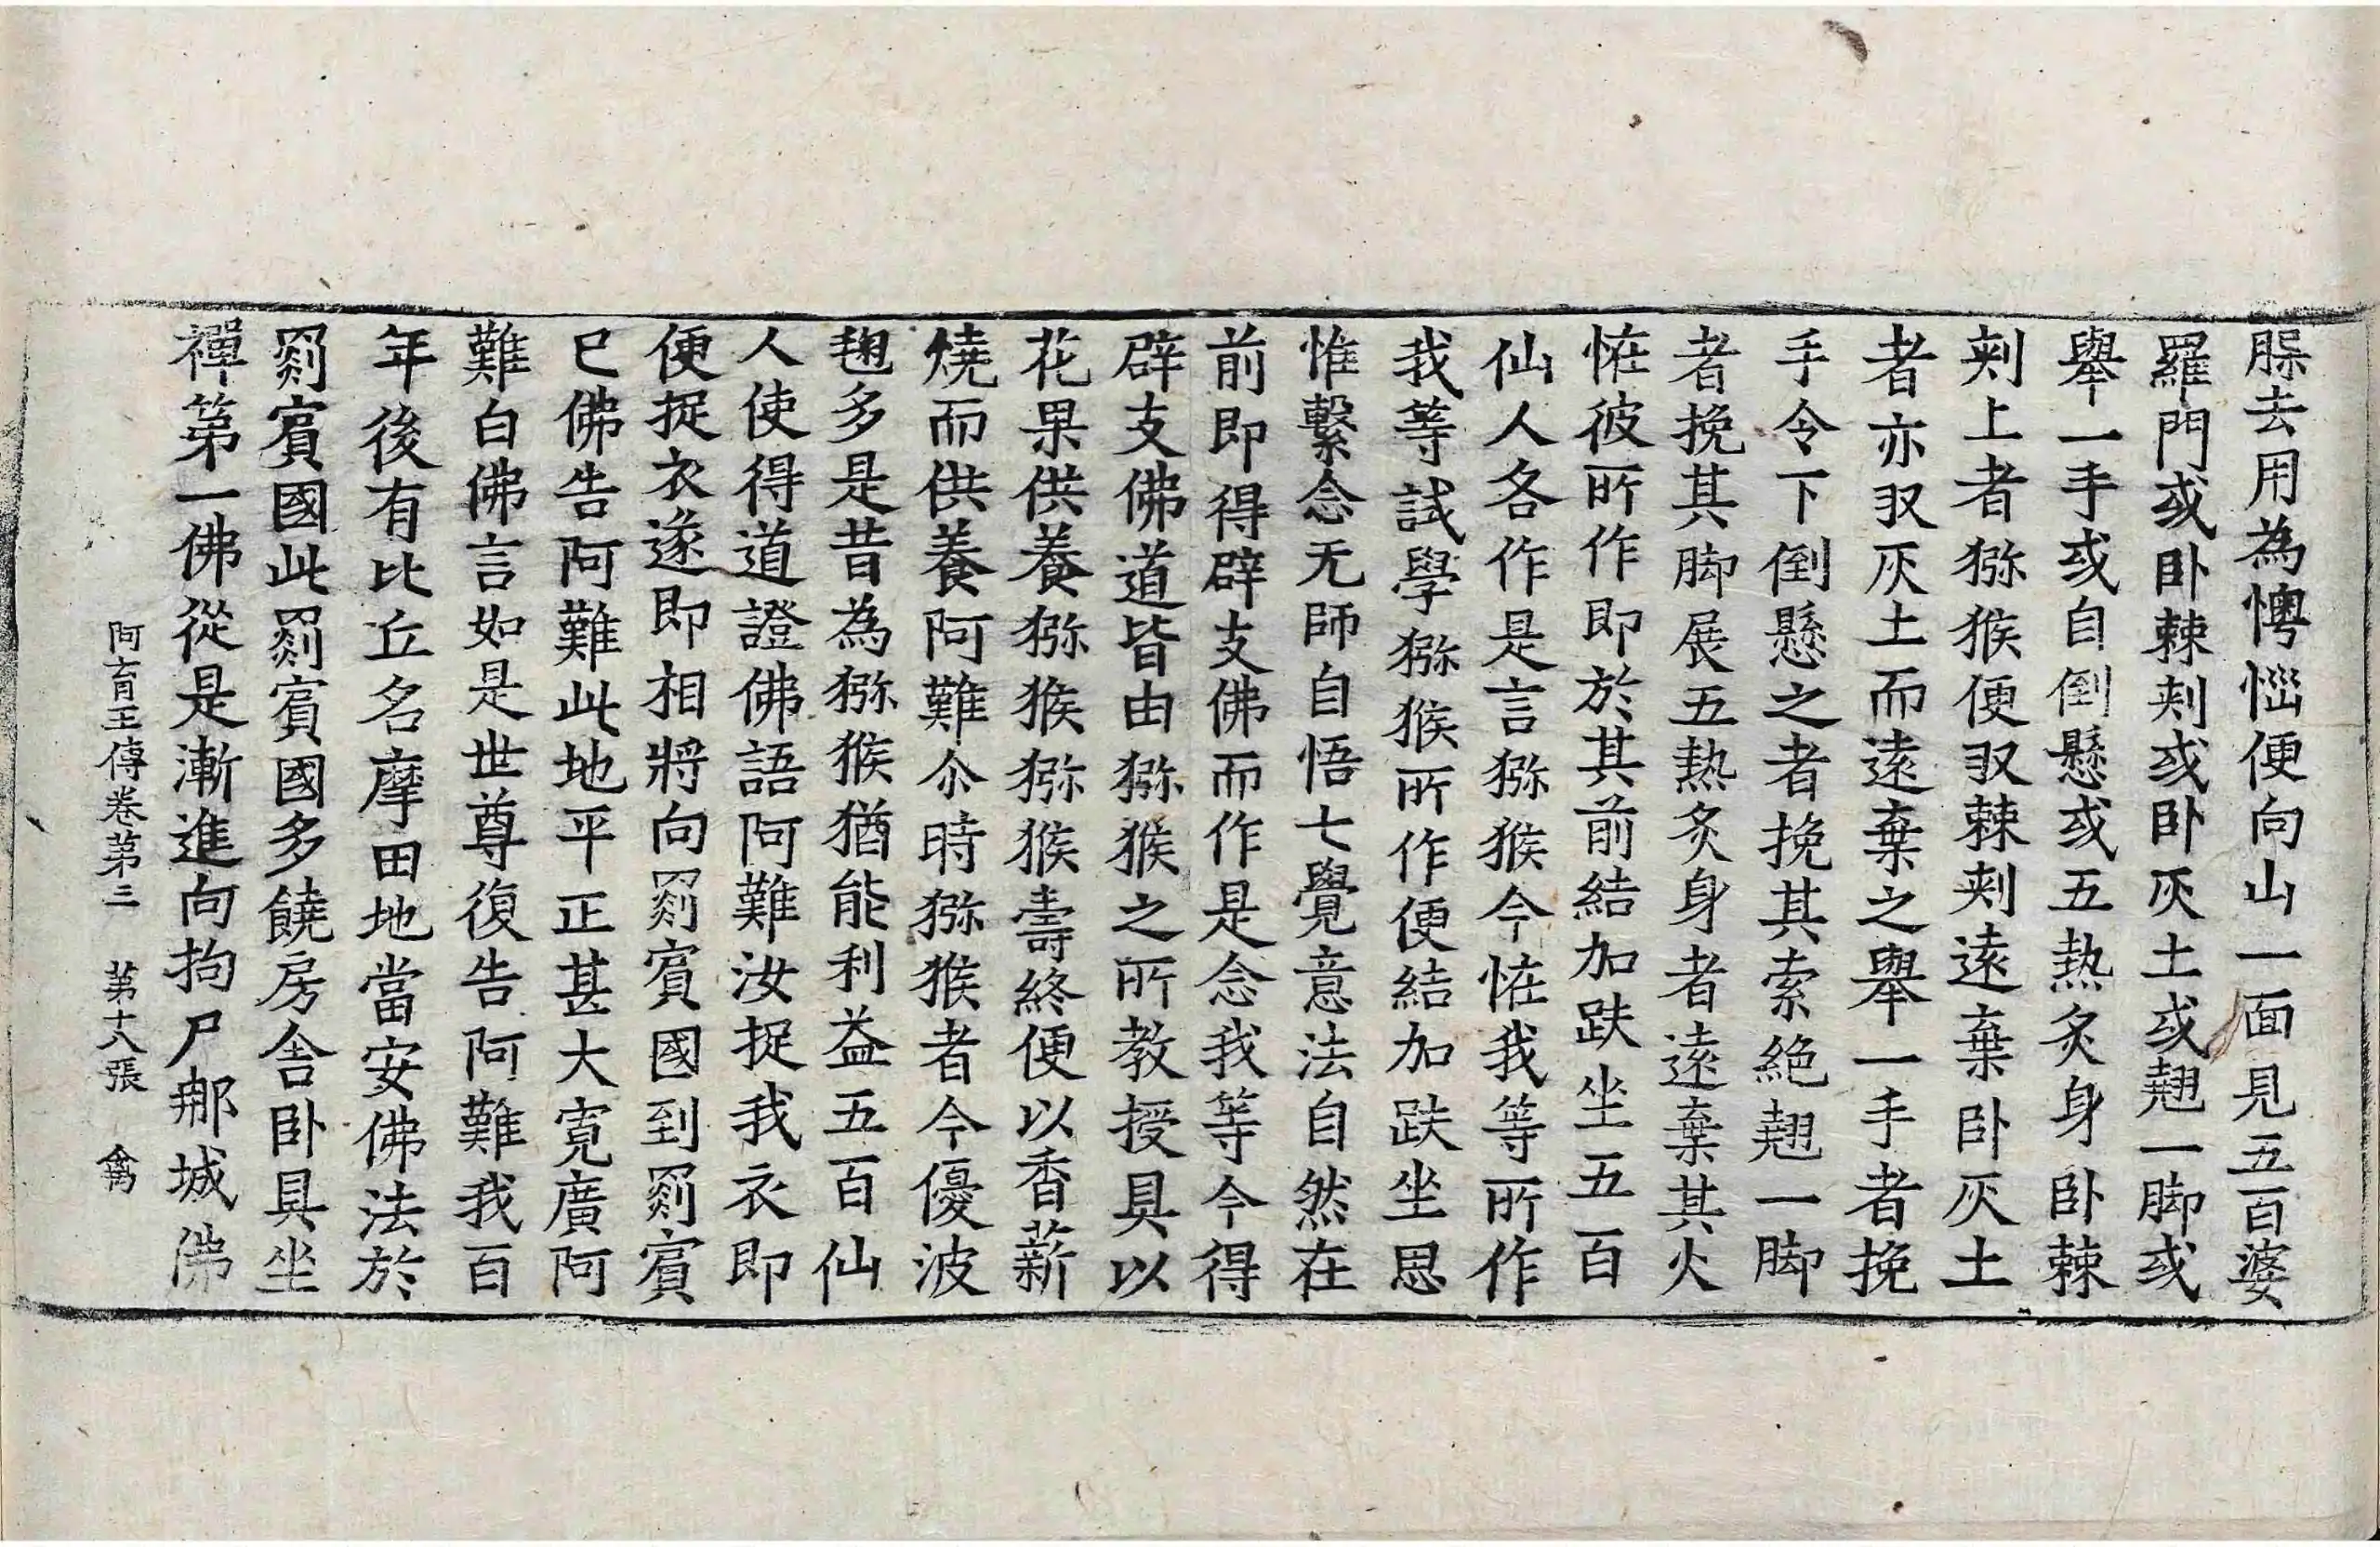 脵去用為懊惱便向山一面見五百婆
羅門或卧棘刾或卧灰土或翹一脚或
舉一手或自倒懸或五熱炙身卧棘
刾上者猕猴便㕛棘刾遠棄卧灰土
者亦㕛灰土而遠棄之舉一手者挽
手令下倒懸之者挽其索絕翹一脚
者挽其脚展五熱炙身者遠棄其火
恠彼所作即於其前結加趺坐五百
仙人各作是言猕猴今恠我等所作
我等試學猕猴所作便結加趺坐思
惟繫念无師自悟七覺意法自然在
前即得辟支佛而作是念我等今得
辟支佛道皆由猕猴之所教授具以
花果供養猕猴猕猴壽終便以香薪
燒而供養阿難尒時猕猴者今優波
毱多是昔為猕猴猶能利益五百仙
人使得道證佛語阿難汝捉我衣即
便捉衣遂即相將向罽賓國到罽賓
已佛告阿難此地平正甚大寬廣阿
難白佛言如是世尊復告阿難我百
年後有比丘名摩田地當安佛法於
罽賓國此罽賓國多饒房舍卧具坐
禪第一佛從是漸進向拘尸那城佛
阿育王傳卷第三 第十八張 禽